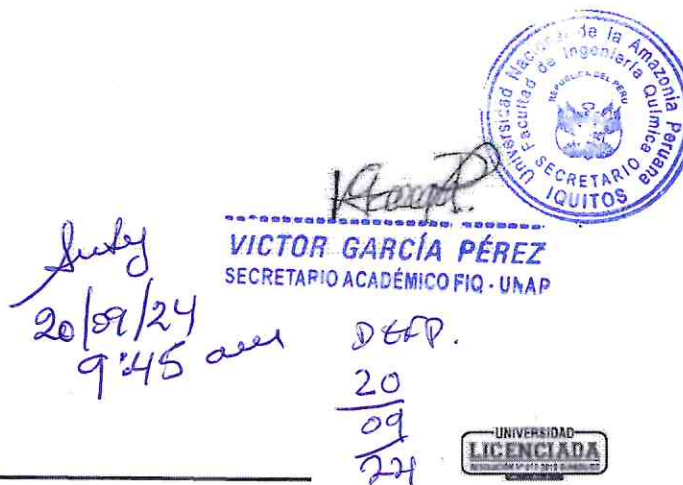 Universidad Nacional de la Amazonia Peruana
Facultad de Ingeniería Química
REPUBLICA DEL PERU
SECRETARIO
IQUITOS
VICTOR GARCÍA PÉREZ
SECRETARIO ACADÉMICO FIQ - UNAP
20/09/24
9:45 am
20
09
24
UNIVERSIDAD
LICENCIADA